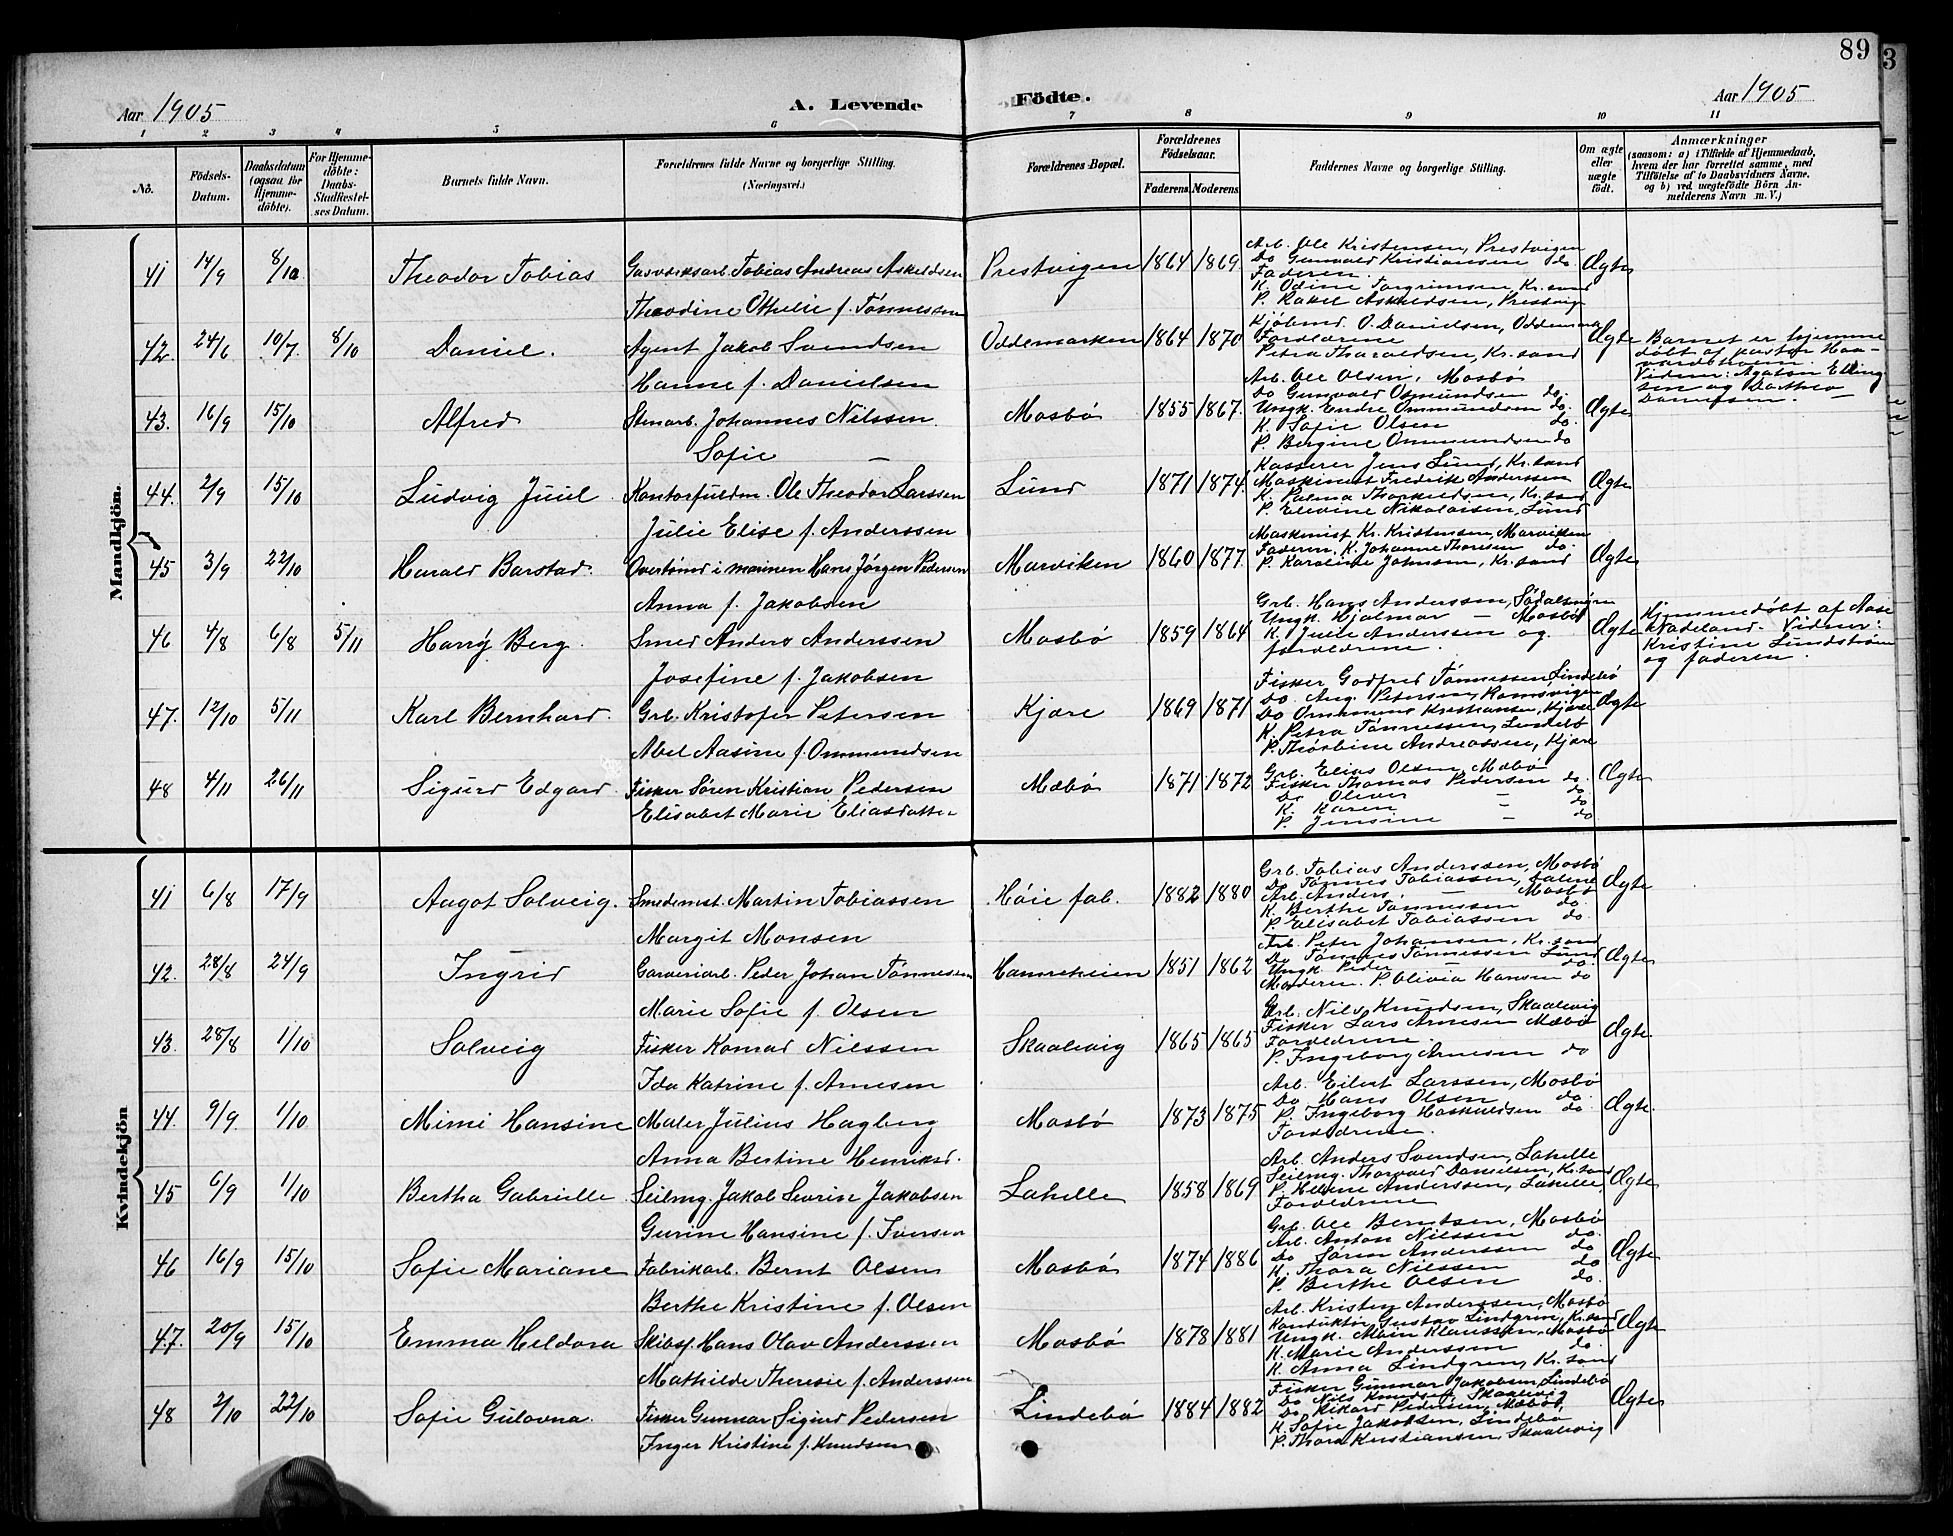 89
3
Aar 1905
A. Levende Födte.
Aar 1905
1 2 3 4 5 6 7 8 9 10 11
No.
Födsels-Datum.
Daabsdatum (ogsaa for Hjemme-döbte).
For Hjemme-döbte: Daabs-Stadfestel-ses Datum.
Barnets fulde Navn.
Forældrenes fulde Navne og borgerlige Stilling.
(Næringsvei.)
Forældrenes Bopæl.
Forældrenes Födselsaar.
Faderens Moderens
Faddernes Navne og borgerlige Stilling.
Om ægte eller uægte født.
Anmærkninger
(saasom: a) i Tilfælde af Hjemmedaab, hvem der har forrettet samme, med Tilföielse af to Daabsvidners Navne, og b) ved uægtefödte Börn An-melderens Navn m. V.)
Mandkjön.
41 14/9 8/10 Theodor Tobias Gasværksarb. Tobias Andreas Askeldsen Prestvigen 1864 1869 Ægte
Theodine Othelie f. Tönnessen
Arb. Ole Kristensen, Prestvigen
Do Gunvald Kristiansen do
Faderen.
K. Odine Torgrimsen, Kr.sand
P. Rakel Askeldsen, Prestvig
42 24/6 10/7 8/10 Daniel. Agent Jakob Svendsen Oddemarken 1864 1870 Ægte
Hanne f. Danielsen
Kjöbmd. O. Danielsen, Oddemark
Forældrene
Petra Tharaldsen, Kr.sand
Barnet er hjemme
döbt af pastor Haa-
Vidner: Agaton Elling
sen og Dorthea
Danielsen. —
43. 16/9 15/10 Alfred Stenarb. Johannes Nilssen. Mosbö 1855 1867. Ægte
Sofie —
Arb. Ole Olsen, Mosbö
Do Gunvald Osmundsen do.
Ungk. Endre Ommundsen do.
K. Sofie Olsen do.
P. Bergine Ommundsen do
44. 2/9 15/10 Ludvig Juul Kontorfuldm. Ole Theodor Larssen Lund 1871 1874. Ægte
Julie Elise f. Anderssen
Kasserer Jens Lund, Kr.sand
Maskinist Fredrik Anderssen
K. Palma Thorkildsen, Kr.sand
P. Elevine Nikolaisen, Lund
45 3/9 22/10 Harald Barstad. Overtömd i marinen Hans Jörgen Pedersen Marviken 1860 1877. Ægte
Anna f. Jakobsen
Maskinist Kr. Kristensen, Marviken
Faderen, K. Johanne Thoresen do.
P. Karoline Johnsen, Kr.sand
46 4/8 6/8 5/11 Harry Berg. Smed Anders Anderssen Mosbö 1859 1864 Ægte
Josefine f. Jakobsen
Grb. Hans Anderssen,
Ungk. Hjalmar — Mosbö
K. Julie Anderssen og
forældrene.
Hjemmedöbt af Aase
Vidner:
Kristine Lundström
og faderen.
47. 12/10 5/11 Karl Bernhard. Grb. Kristofer Petersen Kjære 1869 1871 Ægte
Abel Aasine f. Ommundsen
Fisker Godfred Tönnessen Lindebö
Do Aug. Petersen, Romsvigen
Do Ommund Kristiansen, Kjære
K. Petra Tönnessen, Lindebö
P. Thorbine Andreassen, Kjære
48 4/11 26/11 Sigurd Edgard Fisker Sören Kristian Pedersen Mæbö 1871 1872 Ægte
Elisabet Marie Eliasdatter
Grb. Elias Olsen, Mæbö
Fisker Thomas Pedersen do.
Do Oliver — do
K. Karen do
P. Jensine — do
Kvindekjön
41 6/8 17/9 Aagot Solveig. Smedemst. Martin Tobiassen Höie fab. 1882 1880 Ægte
Margit Monsen
Grb. Tobias Anderssen, Mosbö
Do Tönnes Tobiassen,
Arb. Anders — Mosbö
K. Berthe Tönnessen do.
P. Elisabet Tobiassen do.
42. 28/8 24/9 Ingrid Garveriarb. Peder Johan Tönnessen Hamreheien 1851 1862 Ægte
Marie Sofie f. Olsen
Arb. Peter Johansen, Kr.sand
Do Tönnes Tönnessen Lund
Ungk. Peder — do.
Moderen. P. Olivia Hansen do
43. 28/8 1/10 Solveig Fisker Konrad Nilssen Skaalevig 1865 1865 Ægte.
Ida Katrine f. Arnesen
Grb. Nils Knudsen, Skaalevig
Fisker Lars Arnesen Mæbö
Forældrene.
P. Ingeborg Arnesen do
44. 9/9 1/10 Mimi Hansine Maler Julius Hagberg Mosbö 1873 1875 Ægte.
Anna Bertine Henriksd.
Arb. Eilert Larssen, Mosbö
Do Hans Olsen do.
P. Ingeborg Haskuldsen do.
Forældrene.
45 6/9 1/10 Bertha Gabrielle Seilmg. Jakob Severin Jakobsen Lahelle 1858 1869 Ægte
Gurine Hansine f. Iversen
Arb. Anders Svendsen, Lahelle
Seilmg. Thorvald Danielsen, Kr.sand
P. Helene Anderssen, Lahelle,
Forældrene
46 16/9 15/10 Sofie Mariane Fabrikarb. Bernt Olsen Mosbö 1874 1886 Ægte
Berthe Kristine f. Olsen
Grb. Ole Berntsen, Mosbö
Arb. Anton Nilssen do.
Do Sören Anderssen do
K. Thora Nilssen do
P. Berthe Olsen do.
47. 20/9 15/10 Emma Heldora Skibsf. Hans Olav Anderssen Mosbö 1878 1881 Ægte
Mathilde Theresie f. Anderssen
Arb. Kristen Anderssen, Mosbö
Konduktör Gustav Lindgren, Kr.sand
Ungk. Main Klaussen, Mosbö
K. Marie Anderssen do.
K. Anna Lindgren, Kr.sand
48 2/10 22/10 Sofie Gulovna. Fisker Gunnar Sigurd Pedersen Lindebö 1884 1882 Ægte
Inger Kristine f. Knudsen
Fisker Gunnar Jakobsen, Lindebö
Do Nils Knudsen, Skaalevig
Do Rikard Pedersen, Mæbö,
K. Sofie Jakobsen, Lindebö
P. Thora Kristiansen, Skaalevig